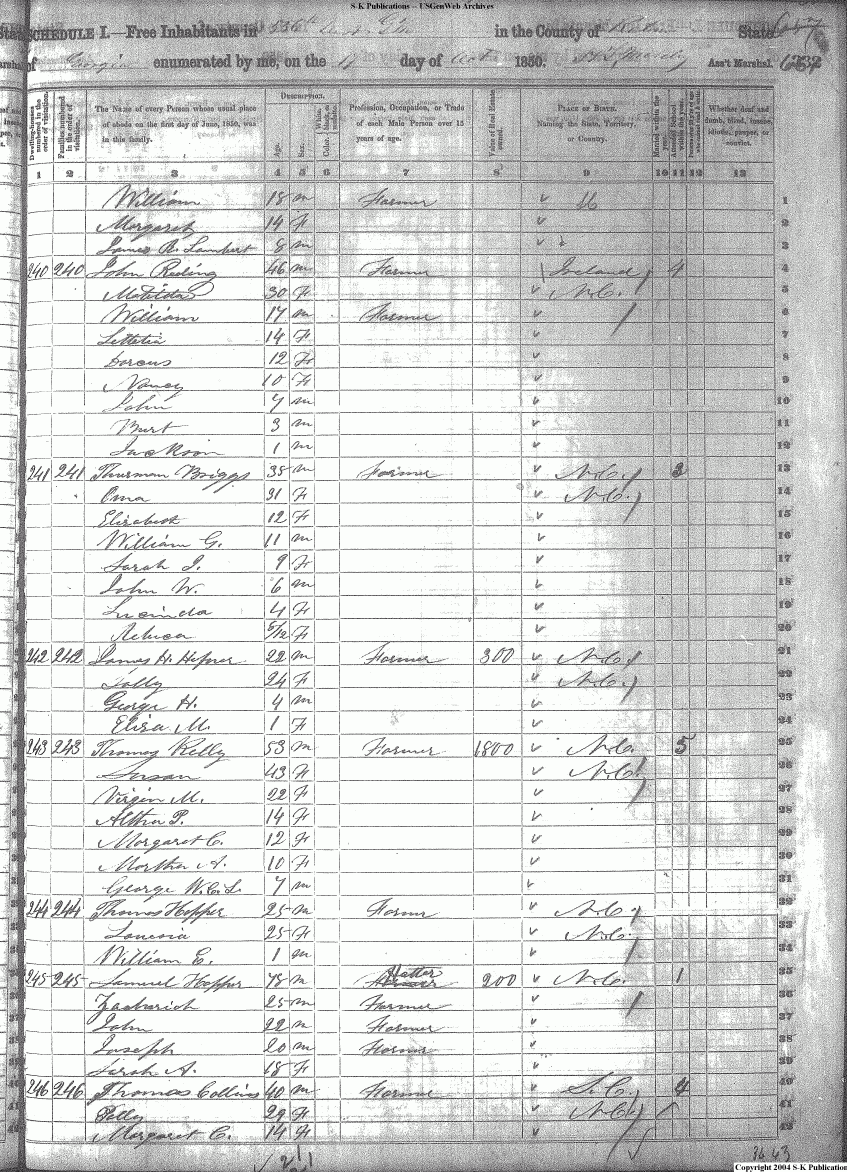 S-K Publications -- USGenWeb Archives
SCHEDULE I.—Free Inhabitants in 536th in the County of State
of Georgia enumerated by me, on the day of Oct 1850. Ass't Marshal.
Dwelling-houses numbered in the order of visitation. Families numbered in the order of visitation. The Name of every Person whose usual place of abode on the first day of June, 1850, was in this family. Description. Age. Sex. White, Color, black, or mulatto. Profession, Occupation, or Trade of each Male Person over 15 years of age. Value of Real Estate owned. Place of Birth. Naming the State, Territory, or Country. Married within the year. Attended School within the year. Whether deaf and dumb, blind, insane, idiotic, pauper, or convict.
1 2 3 4 5 6 7 8 9 10 11 12 13
William 18 m Farmer 1
Margaret 14 F 2
James R. Lambert 8 m 3
240 240 John Reding 46 m Farmer Ireland 4 4
Matilda 30 F N.C. 5
William 17 m Farmer 6
Lettetia 14 F 7
Dorcus 12 F 8
Nancy 10 F 9
John 7 m 10
Burt 3 m 11
Jackson 1 m 12
241 241 Thurman Briggs 35 m Farmer N.C. 3 13
Oma 31 F N.C. 14
Elizabeth 12 F 15
William G. 11 m 16
Sarah J. 9 F 17
John W. 6 m 18
Lucinda 4 F 19
Rebeca 5/12 F 20
242 242 James H. Hefner 22 m Farmer 300 N.C. 21
24 F N.C. 22
George H. 4 m 23
Eliza M. 1 F 24
243 243 Thomas Kelly 53 m Farmer 1800 N.C. 5 25
Susan 43 F N.C. 26
Virgin M. 22 F 27
Altha P. 14 F 28
Margaret C. 12 F 29
Martha A. 10 F 30
George W.C.L. 7 m 31
244 244 Thomas Hopper 25 m Farmer N.C. 32
Louesia 25 F N.C. 33
William E. 1 m 34
245 245 Samuel Hopper 78 m Hatter 200 N.C. 1 35
Zacharich 25 m Farmer 36
John 22 m Farmer 37
Joseph 20 m Farmer 38
Sarah A. 18 F 39
246 246 Thomas Collins 40 m Farmer S.C. 4 40
29 F N.C. 41
Margaret C. 14 F 42
Copyright 2004 S-K Publication